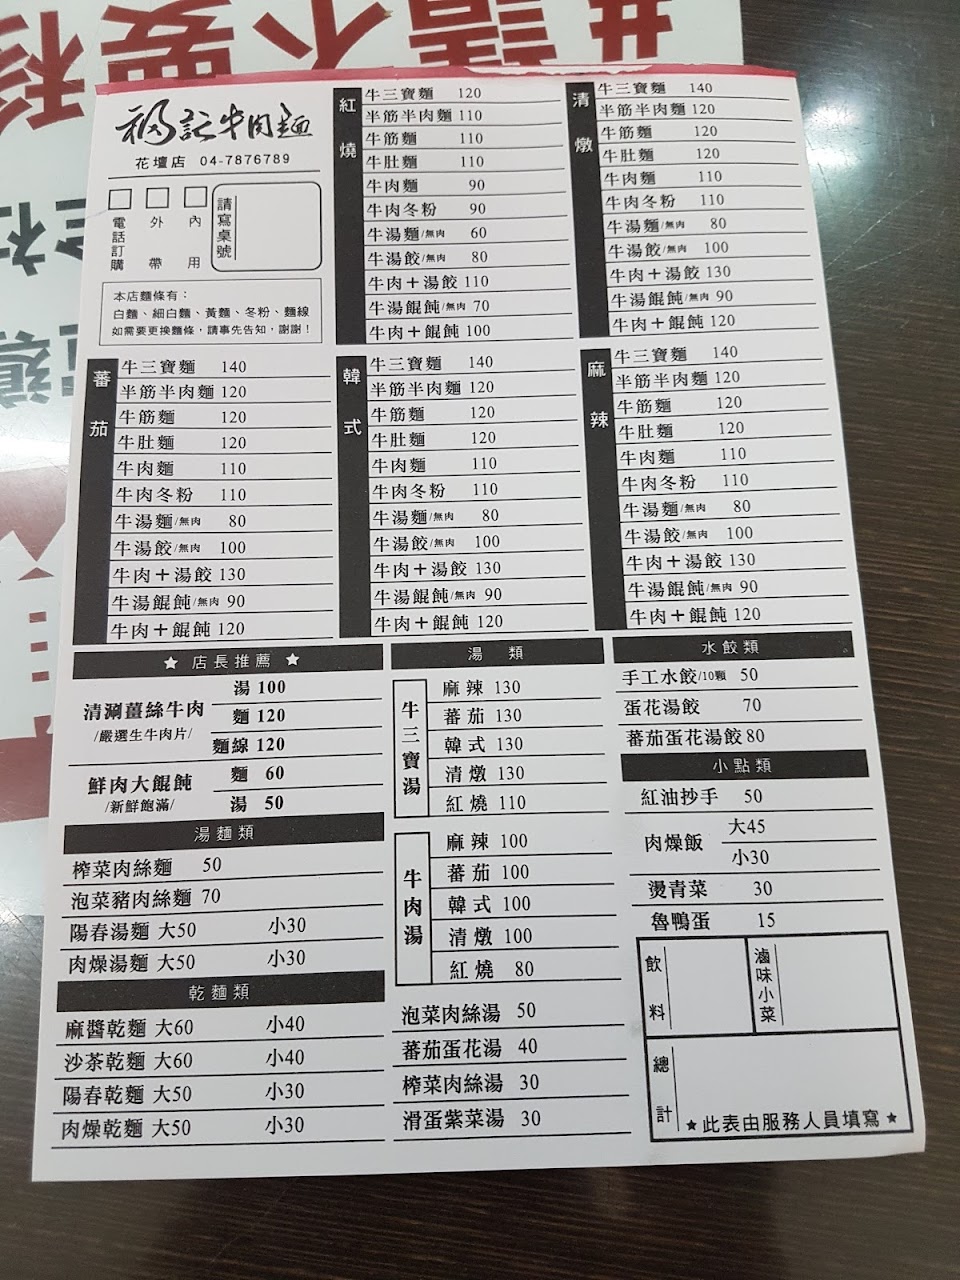 福記牛肉麵
花壇店 04-7876789
電話訂購
外帶
內用
請寫桌號
本店麵條有：
白麵、細白麵、黃麵、冬粉、麵線
如需要更換麵條，請事先告知，謝謝！
紅燒
牛三寶麵 120
半筋半肉麵 110
牛筋麵 110
牛肚麵 110
牛肉麵 90
牛肉冬粉 90
牛湯麵/無肉 60
牛湯餃/無肉 80
牛肉＋湯餃 110
牛湯餛飩/無肉 70
牛肉＋餛飩 100
清燉
牛三寶麵 140
半筋半肉麵 120
牛筋麵 120
牛肚麵 120
牛肉麵 110
牛肉冬粉 110
牛湯麵/無肉 80
牛湯餃/無肉 100
牛肉＋湯餃 130
牛湯餛飩/無肉 90
牛肉＋餛飩 120
蕃茄
牛三寶麵 140
半筋半肉麵 120
牛筋麵 120
牛肚麵 120
牛肉麵 110
牛肉冬粉 110
牛湯麵/無肉 80
牛湯餃/無肉 100
牛肉＋湯餃 130
牛湯餛飩/無肉 90
牛肉＋餛飩 120
韓式
牛三寶麵 140
半筋半肉麵 120
牛筋麵 120
牛肚麵 120
牛肉麵 110
牛肉冬粉 110
牛湯麵/無肉 80
牛湯餃/無肉 100
牛肉＋湯餃 130
牛湯餛飩/無肉 90
牛肉＋餛飩 120
麻辣
牛三寶麵 140
半筋半肉麵 120
牛筋麵 120
牛肚麵 120
牛肉麵 110
牛肉冬粉 110
牛湯麵/無肉 80
牛湯餃/無肉 100
牛肉＋湯餃 130
牛湯餛飩/無肉 90
牛肉＋餛飩 120
★ 店長推薦 ★
清涮薑絲牛肉
/嚴選生牛肉片/
湯 100
麵 120
麵線 120
鮮肉大餛飩
/新鮮飽滿/
麵 60
湯 50
湯麵類
榨菜肉絲麵 50
泡菜豬肉絲麵 70
陽春湯麵 大50 小30
肉燥湯麵 大50 小30
乾麵類
麻醬乾麵 大60 小40
沙茶乾麵 大60 小40
陽春乾麵 大50 小30
肉燥乾麵 大50 小30
湯類
牛三寶湯
麻辣 130
蕃茄 130
韓式 130
清燉 130
紅燒 110
牛肉湯
麻辣 100
蕃茄 100
韓式 100
清燉 100
紅燒 80
泡菜肉絲湯 50
蕃茄蛋花湯 40
榨菜肉絲湯 30
滑蛋紫菜湯 30
水餃類
手工水餃/10顆 50
蛋花湯餃 70
蕃茄蛋花湯餃 80
小點類
紅油抄手 50
肉燥飯
大45
小30
燙青菜 30
魯鴨蛋 15
飲料
滷味小菜
總計
★ 此表由服務人員填寫 ★
#請不要移